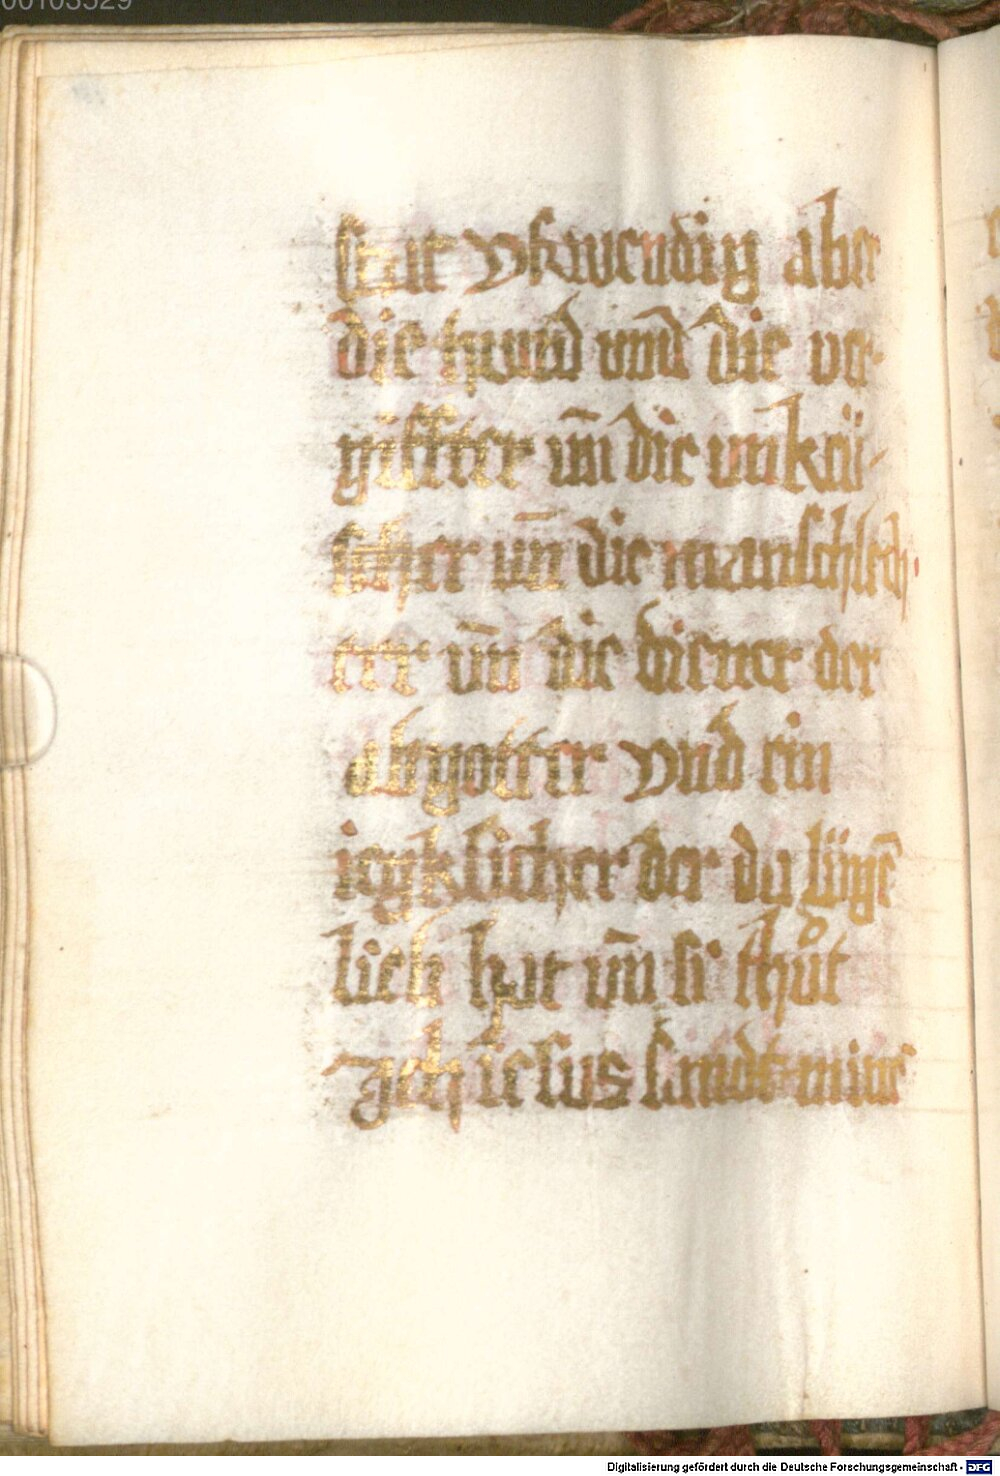 00103529
statt vskwendig aber
die hund vnd die ver-
giffter vn̄ die vnkeü-
scher vn̄ die manschlech
ter vn̄ die diener der
abgötter vnd ein
icgklicher der da lüge̅
lieb hat vn̄ si thůt
Jch iesus sendt mine̅
Digitalisierung gefördert durch die Deutsche Forschungsgemeinschaft - DFG